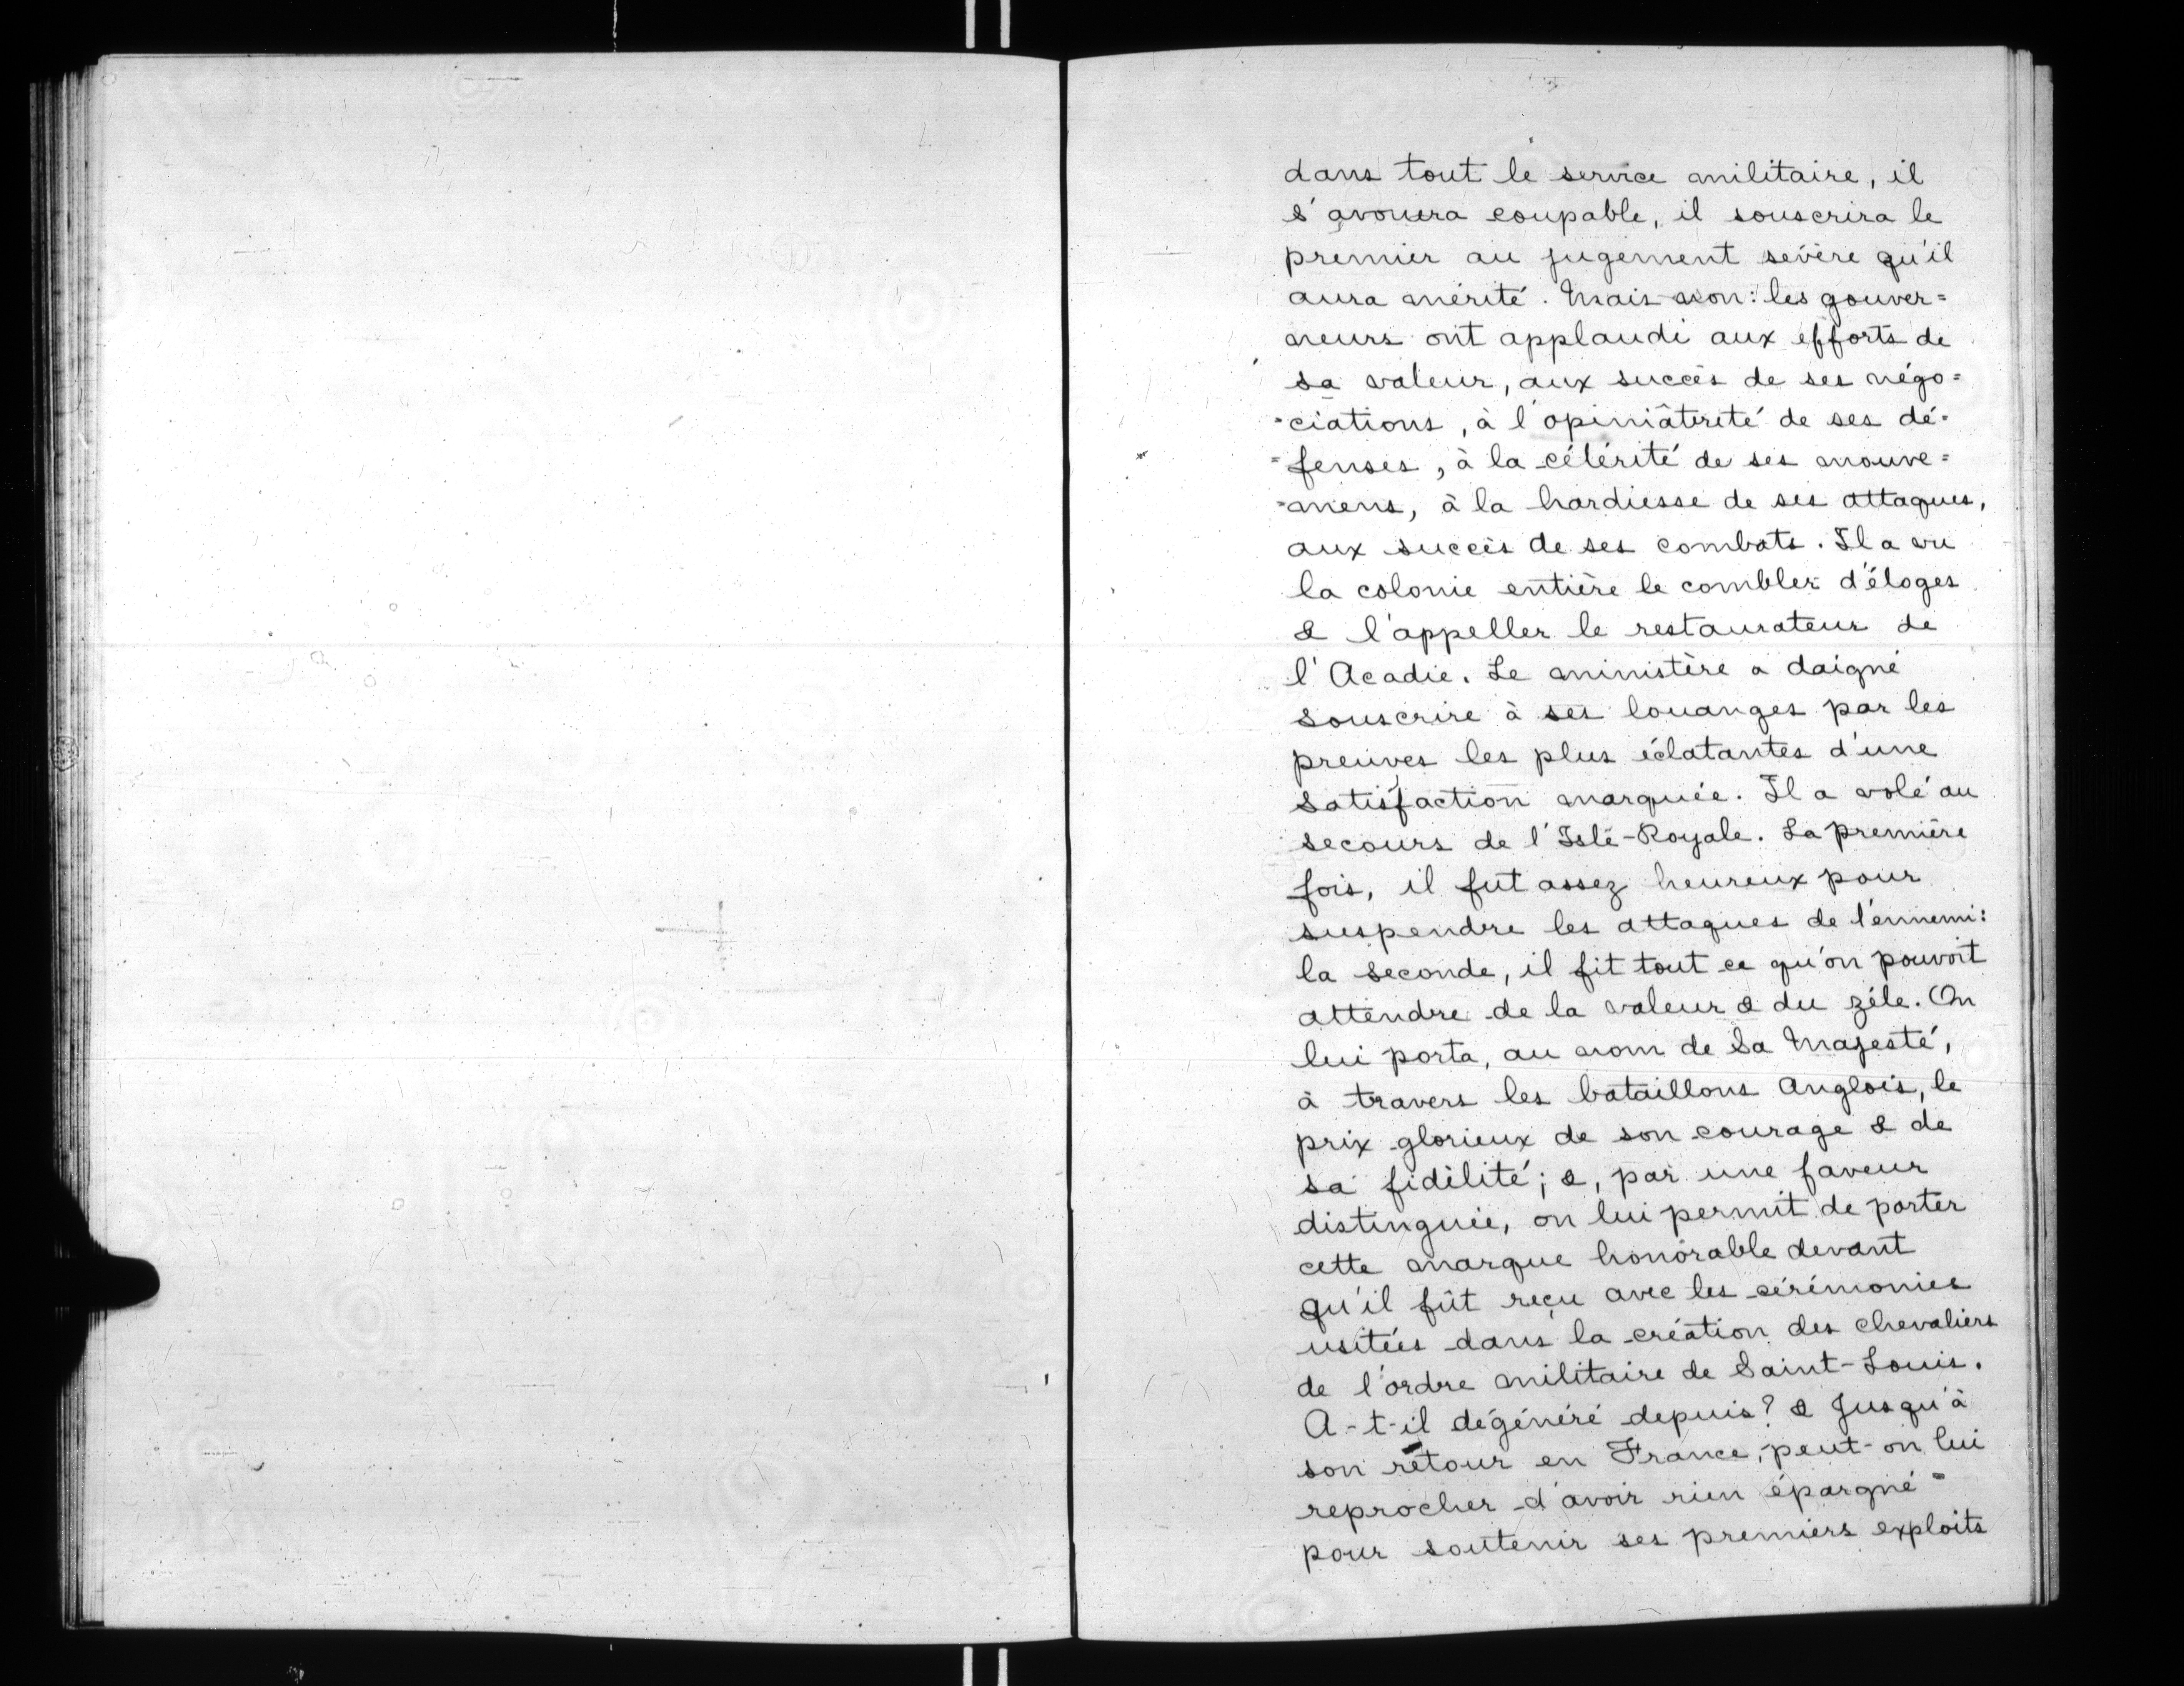 dans tout le service militaire, il
s'avouera coupable, il souscrira le
premier au jugement sevère qu'il
aura mérité. Mais non: les gouver=
neurs ont applaudi aux efforts de
sa valeur, aux succès de ses négo=
=ciations, à l'opiniâtreté de ses dé=
=fenses, à la célérité de ses mouve=
=mens, à la hardiesse de ses attaques,
aux succès de ses combats. Il a vu
la colonie entière le combler d'éloges
& l'appeller le restaurateur de
l'Acadie. Le ministère a daigné
souscrire à ses louanges par les
preuves les plus éclatantes d'une
satisfaction marquée. Il a volé au
secours de l'Isle-Royale. La première
fois, il fut assez heureux pour
suspendre les attaques de l'ennemi:
la seconde, il fit tout ce qu'on pouvoit
attendre de la valeur & du zéle. On
lui porta, au nom de Sa Majesté,
à travers les bataillons Anglois, le
prix glorieux de son courage & de
sa fidélité; &, par une faveur
distinguée, on lui permit de porter
cette marque honorable devant
qu'il fût reçu avec les sérémonies
usitées dans la création des chevaliers
de l'ordre militaire de Saint-Louis.
A-t-il dégénéré depuis? & Jusqu'à
son retour en France, peut-on lui
reprocher d'avoir rien épargné
pour soutenir ses premiers exploits